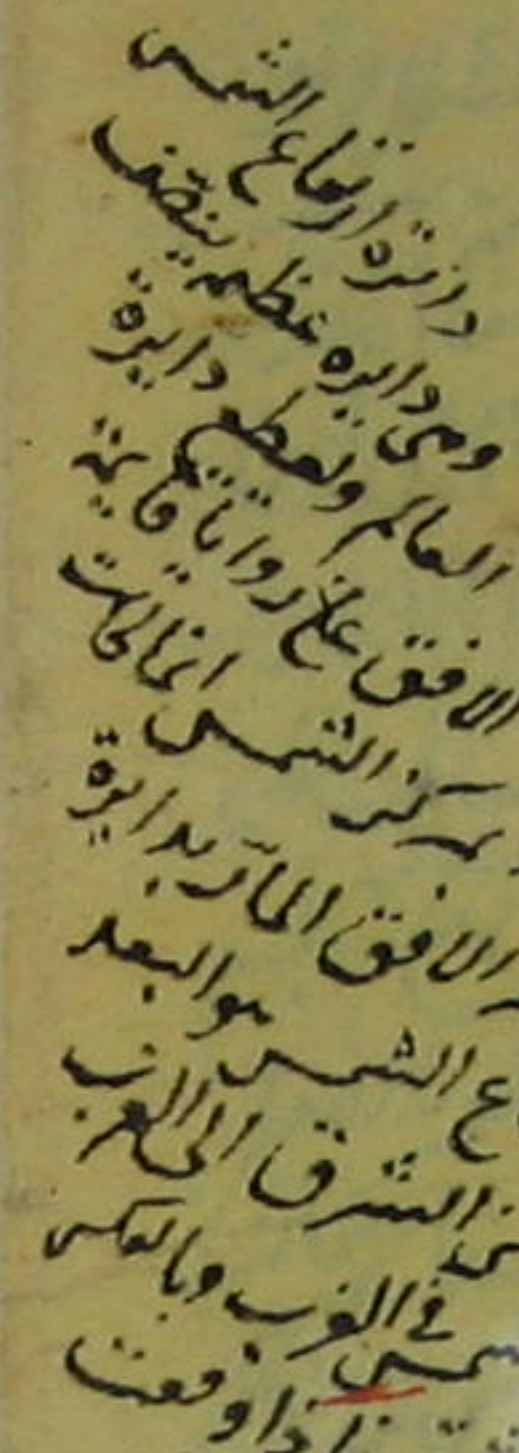 دائرة ارتفاع الشمس
وهى دايره عظيمة ينصف
العالم وتقطع دايرة
الافق على زوايا قايمة
بمركز الشمس اذا كانت
الافق المار بدايرة
ع الشمس هو البعد
الشرق الى الغرب
فى الغرب وبالعكس
اذا وقعت